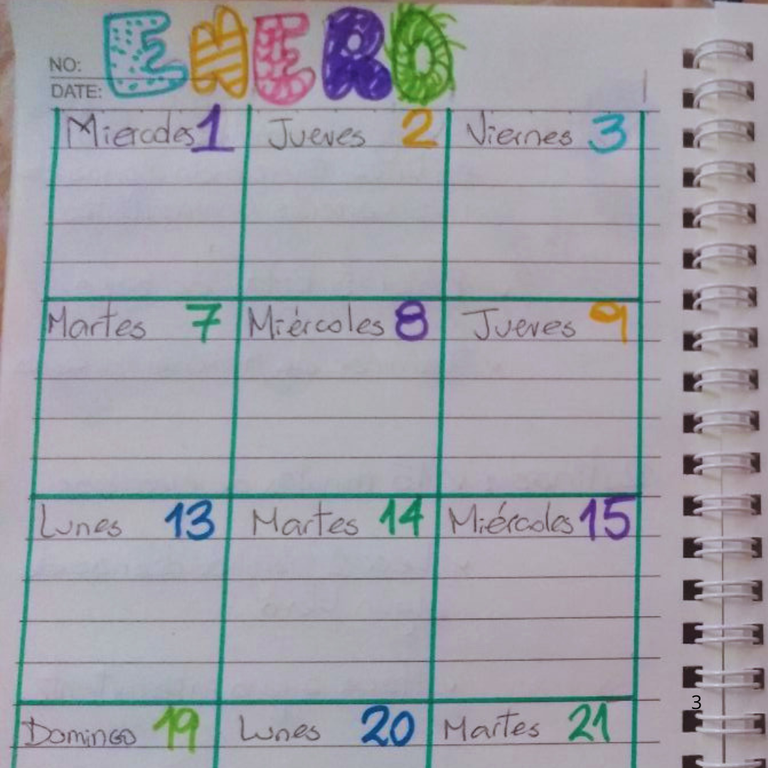 ENERO
NO:
DATE:
Miercoles 1 Jueves 2 Viernes 3
Martes 7 Miércoles 8 Jueves 9
Lunes 13 Martes 14 Miércoles 15
3
Domingo 19 Lunes 20 Martes 21